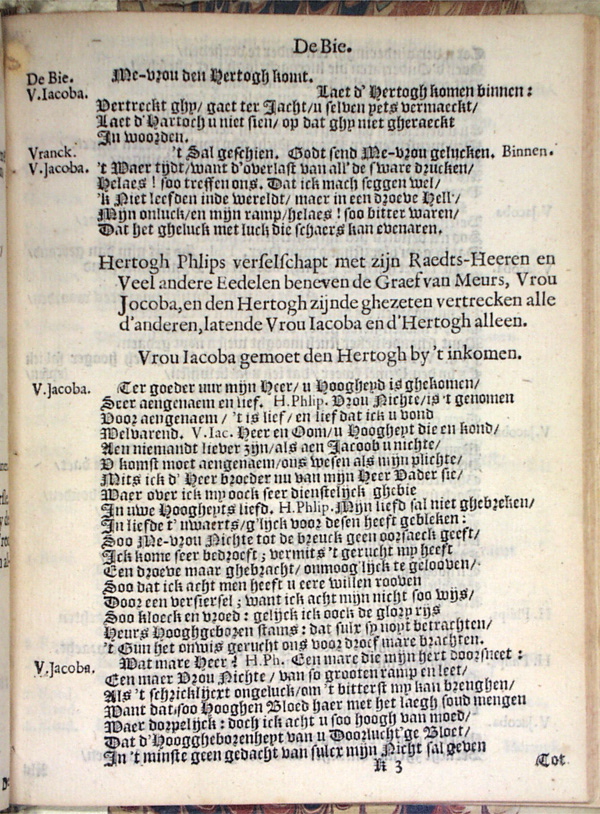 De Bie.
De Bie. Me-vrou den Hertogh komt.
V.Iacoba. Laet d'Hertogh komen binnen:
Vertreckt ghy/ gaet ter Jacht/u selven yets vermaeckt/
Laet d'Hartoch u niet sien/ op dat ghy niet gheraeckt
In woorden.
Vranck. 't Sal geschien. Godt send Me-vrou gelucken. Binnen.
V.Jacoba. 't Waer tydt/want d'overlast van all' de sware drucken/
Helaes! soo treffen ons. Dat ick mach seggen wel/
'k Niet leef den inde wereldt/ maer in een droeve Hell'/
Mijn onluck/en mijn ramp/helaes! soo bitter waren/
Dat het gheluck met luck die schaers kan evenaren.
Hertogh Phlips verselschapt met zijn Raedts-Heeren en
Veel andere Eedelen beneven de Graef van Meurs, Vrou
Jocoba,en den Hertogh zijnde ghezeten vertrecken alle
d'anderen,latende Vrou Iacoba en d'Hertogh alleen.
Vrou Iacoba gemoet den Hertogh by 't inkomen.
V.Jacoba. Ter goeder uur mijn Heer/ u Hoogheyd is ghekomen/
Seer aengenaem en lief. H.Phlip. Vrou Nichte/is 't genomen
Voor aengenaem/ 't is lief/ en lief dat ick u vond
Welvarend. V.Iac. Heer en Oom/u Hoogheyt die en kond/
Aen niemandt liever zijn/als aen Jacoob u nichte/
U komst moet aengenaem/ons wesen als mijn plichte/
Mits ick d'Heer broeder nu van mijn Heer Vader sie/
Waer over ick my oock seer dienstelijck ghebie
In uwe Hoogheyts liefd. H.Phlip. Mijn liefd sal niet ghebreken/
In liefde t'uwaerts/g'lijck voor desen heeft gebleken:
Soo Me-vrou Nichte tot de breuck geen oorsaeck geeft/
Ick kome seer bedroeft; vermits 't gerucht my heeft
Een droeve maar ghebracht/ onmoog'lijck te gelooven/
Soo dat ick acht men heeft u eere willen rooven
Door een versiersel; want ick acht mijn nicht soo wijs/
Soo kloeck en vroed: gelijck ick oock de glory rijs
Heurs Hooghgeboren stams: dat sulx sy noyt betrachten/
't Gun het onwis gerucht ons voor droef mare brachten.
V.Jacoba. Wat mare Heer? H.Ph. Een mare die mijn hert doorsneet:
Een maer Vrou Nichte/ van so grooten ramp en leet/
Als 't schricklijcxt ongeluck/om 't bitterst my kan brenghen/
Want dat soo Hooghen Bloed haer met het laegh soud mengen
Waer dorpelijck: doch ick acht u soo hoogh van moed/
Dat d'Hooggheborenheyt van u Doorlucht'ge Bloet/
In 't minste geen gedacht van sulcx mijn Nicht sal geven
K 3 Tot